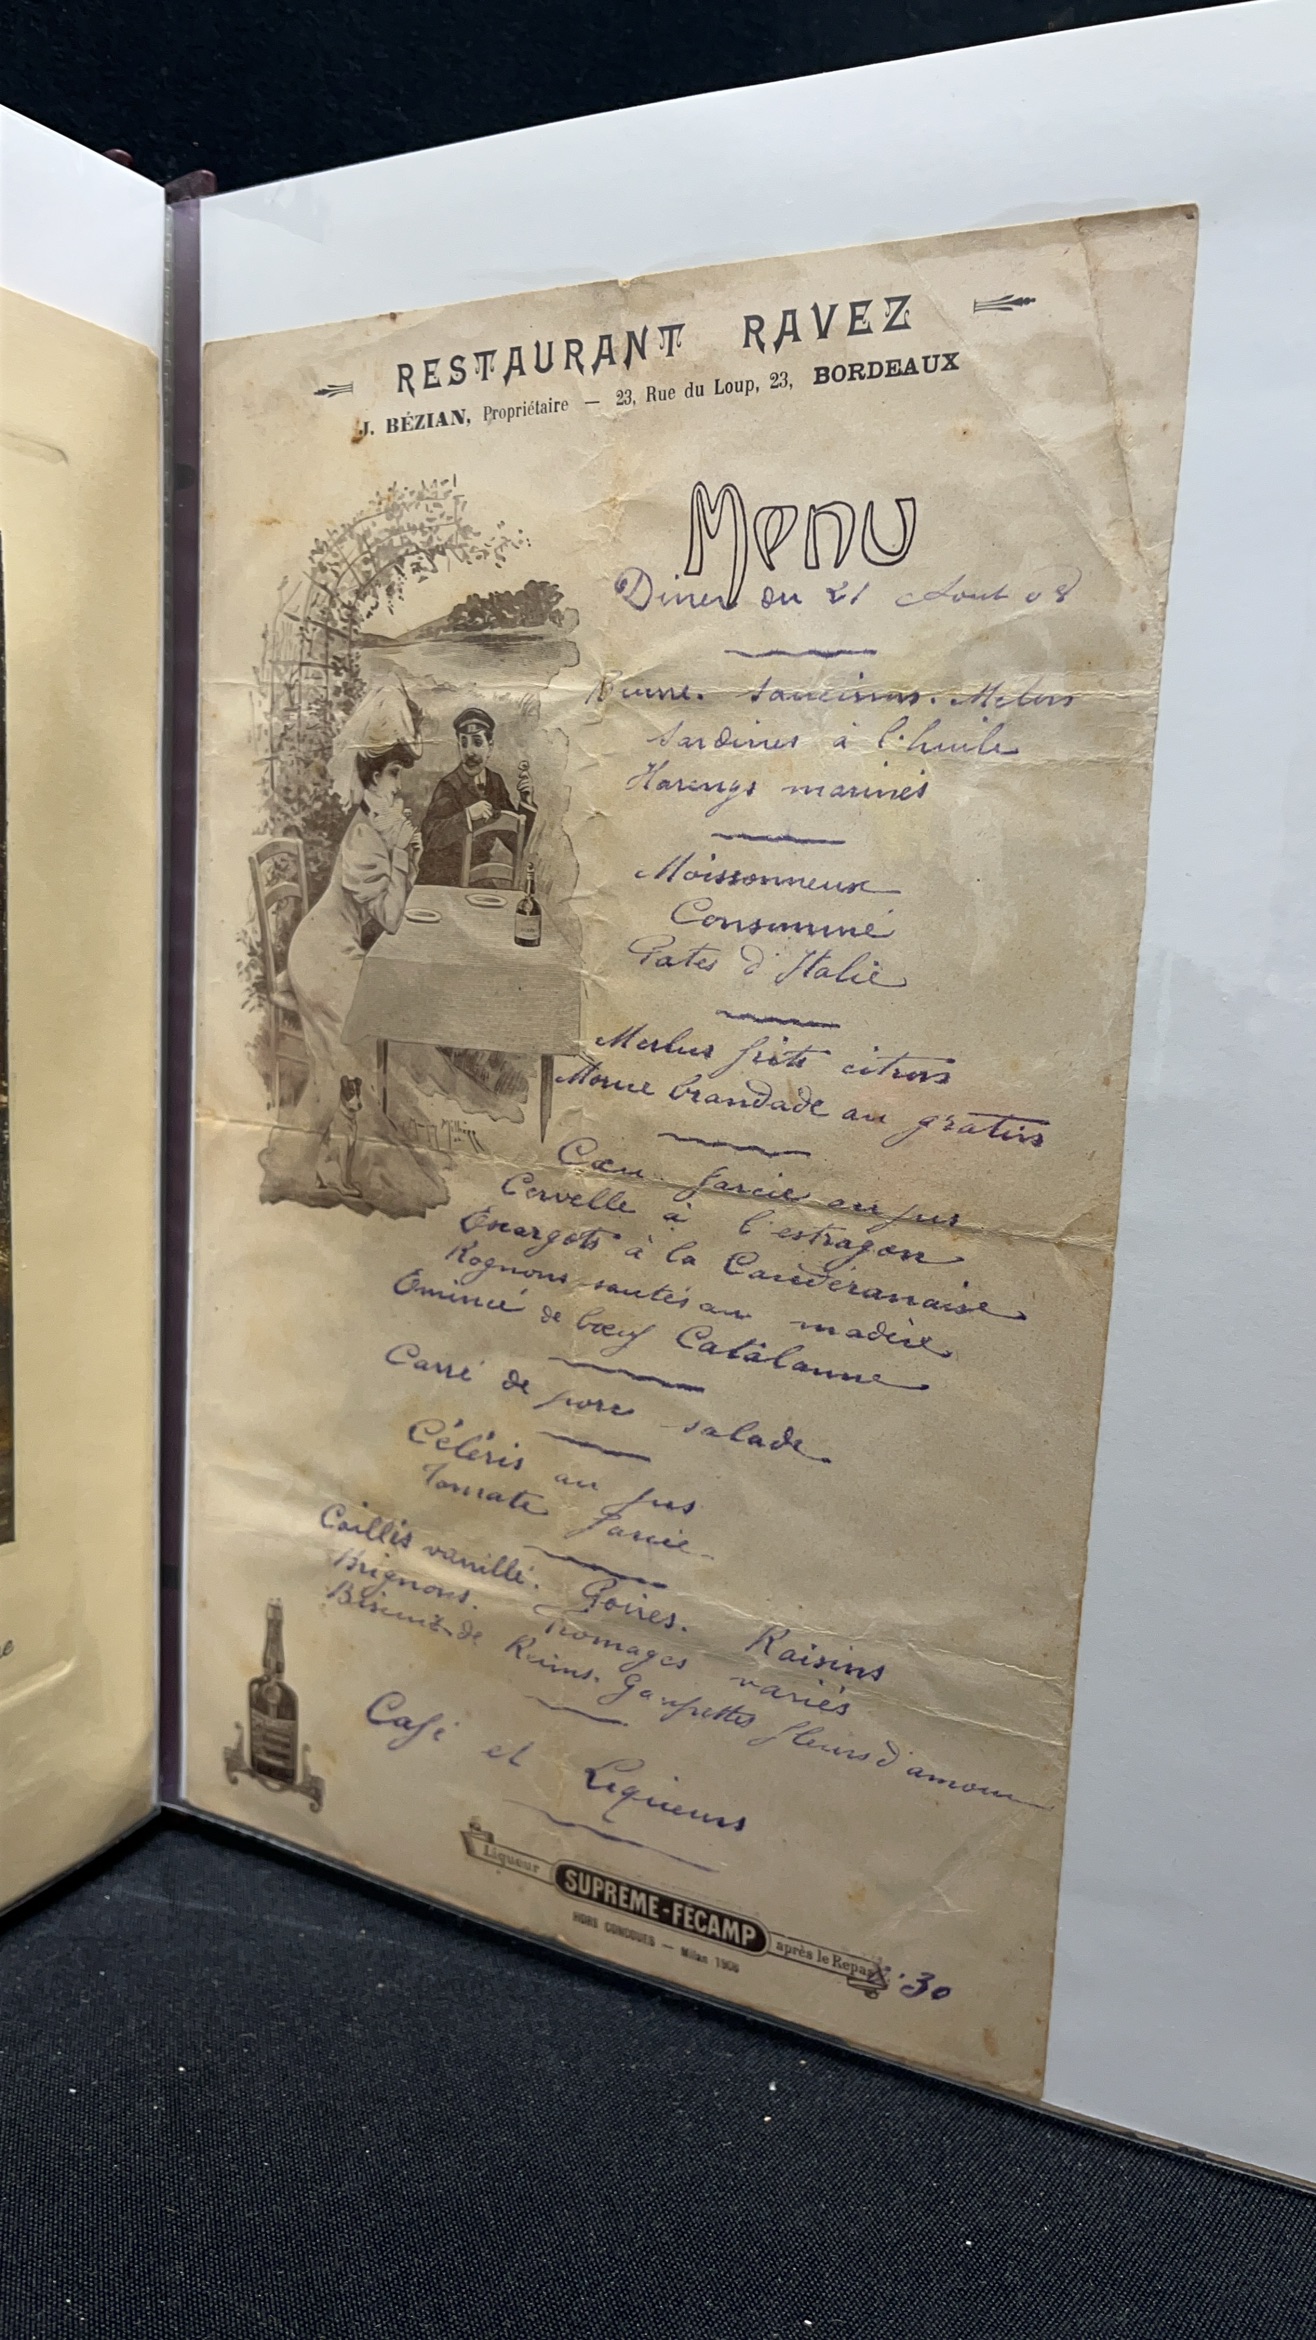 RESTAURANT RAVEZ
J. BÉZIAN, Propriétaire — 23, Rue du Loup, 23, BORDEAUX
Menu
Diner du 21 Aout 08
Beurre. Saucissons. Melons
Sardines à l'huile
Harengs marinés
Moissonneux
Consommé
Pates d'Italie
Merlus frits citrons
Morue brandade au gratin
Cœur farcie au jus
Cervelle à l'estragon
Escargots à la Caudéranaise
Rognons sautés au madère
Emincé de bœuf Catalanne
Carré de porc salade
Céléris au jus
Tomate farcie
Caillés vanillé. Poires. Raisins
Brignons. Fromages variés
Biscuit de Reims. Gaufrettes fleurs d'amour
Café et Liqueurs
Liqueur SUPRÊME-FÉCAMP après le Repas
HORS CONCOURS — Milan 1906
30